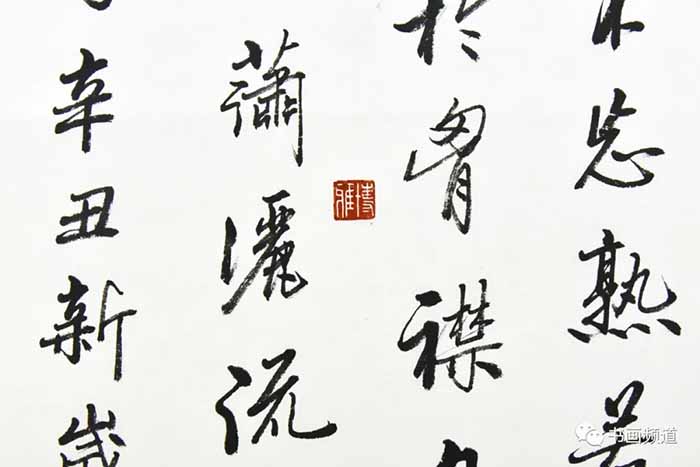 不忘熟若
於胷襟
博雅
蕭灑流
辛丑新歲
书画频道